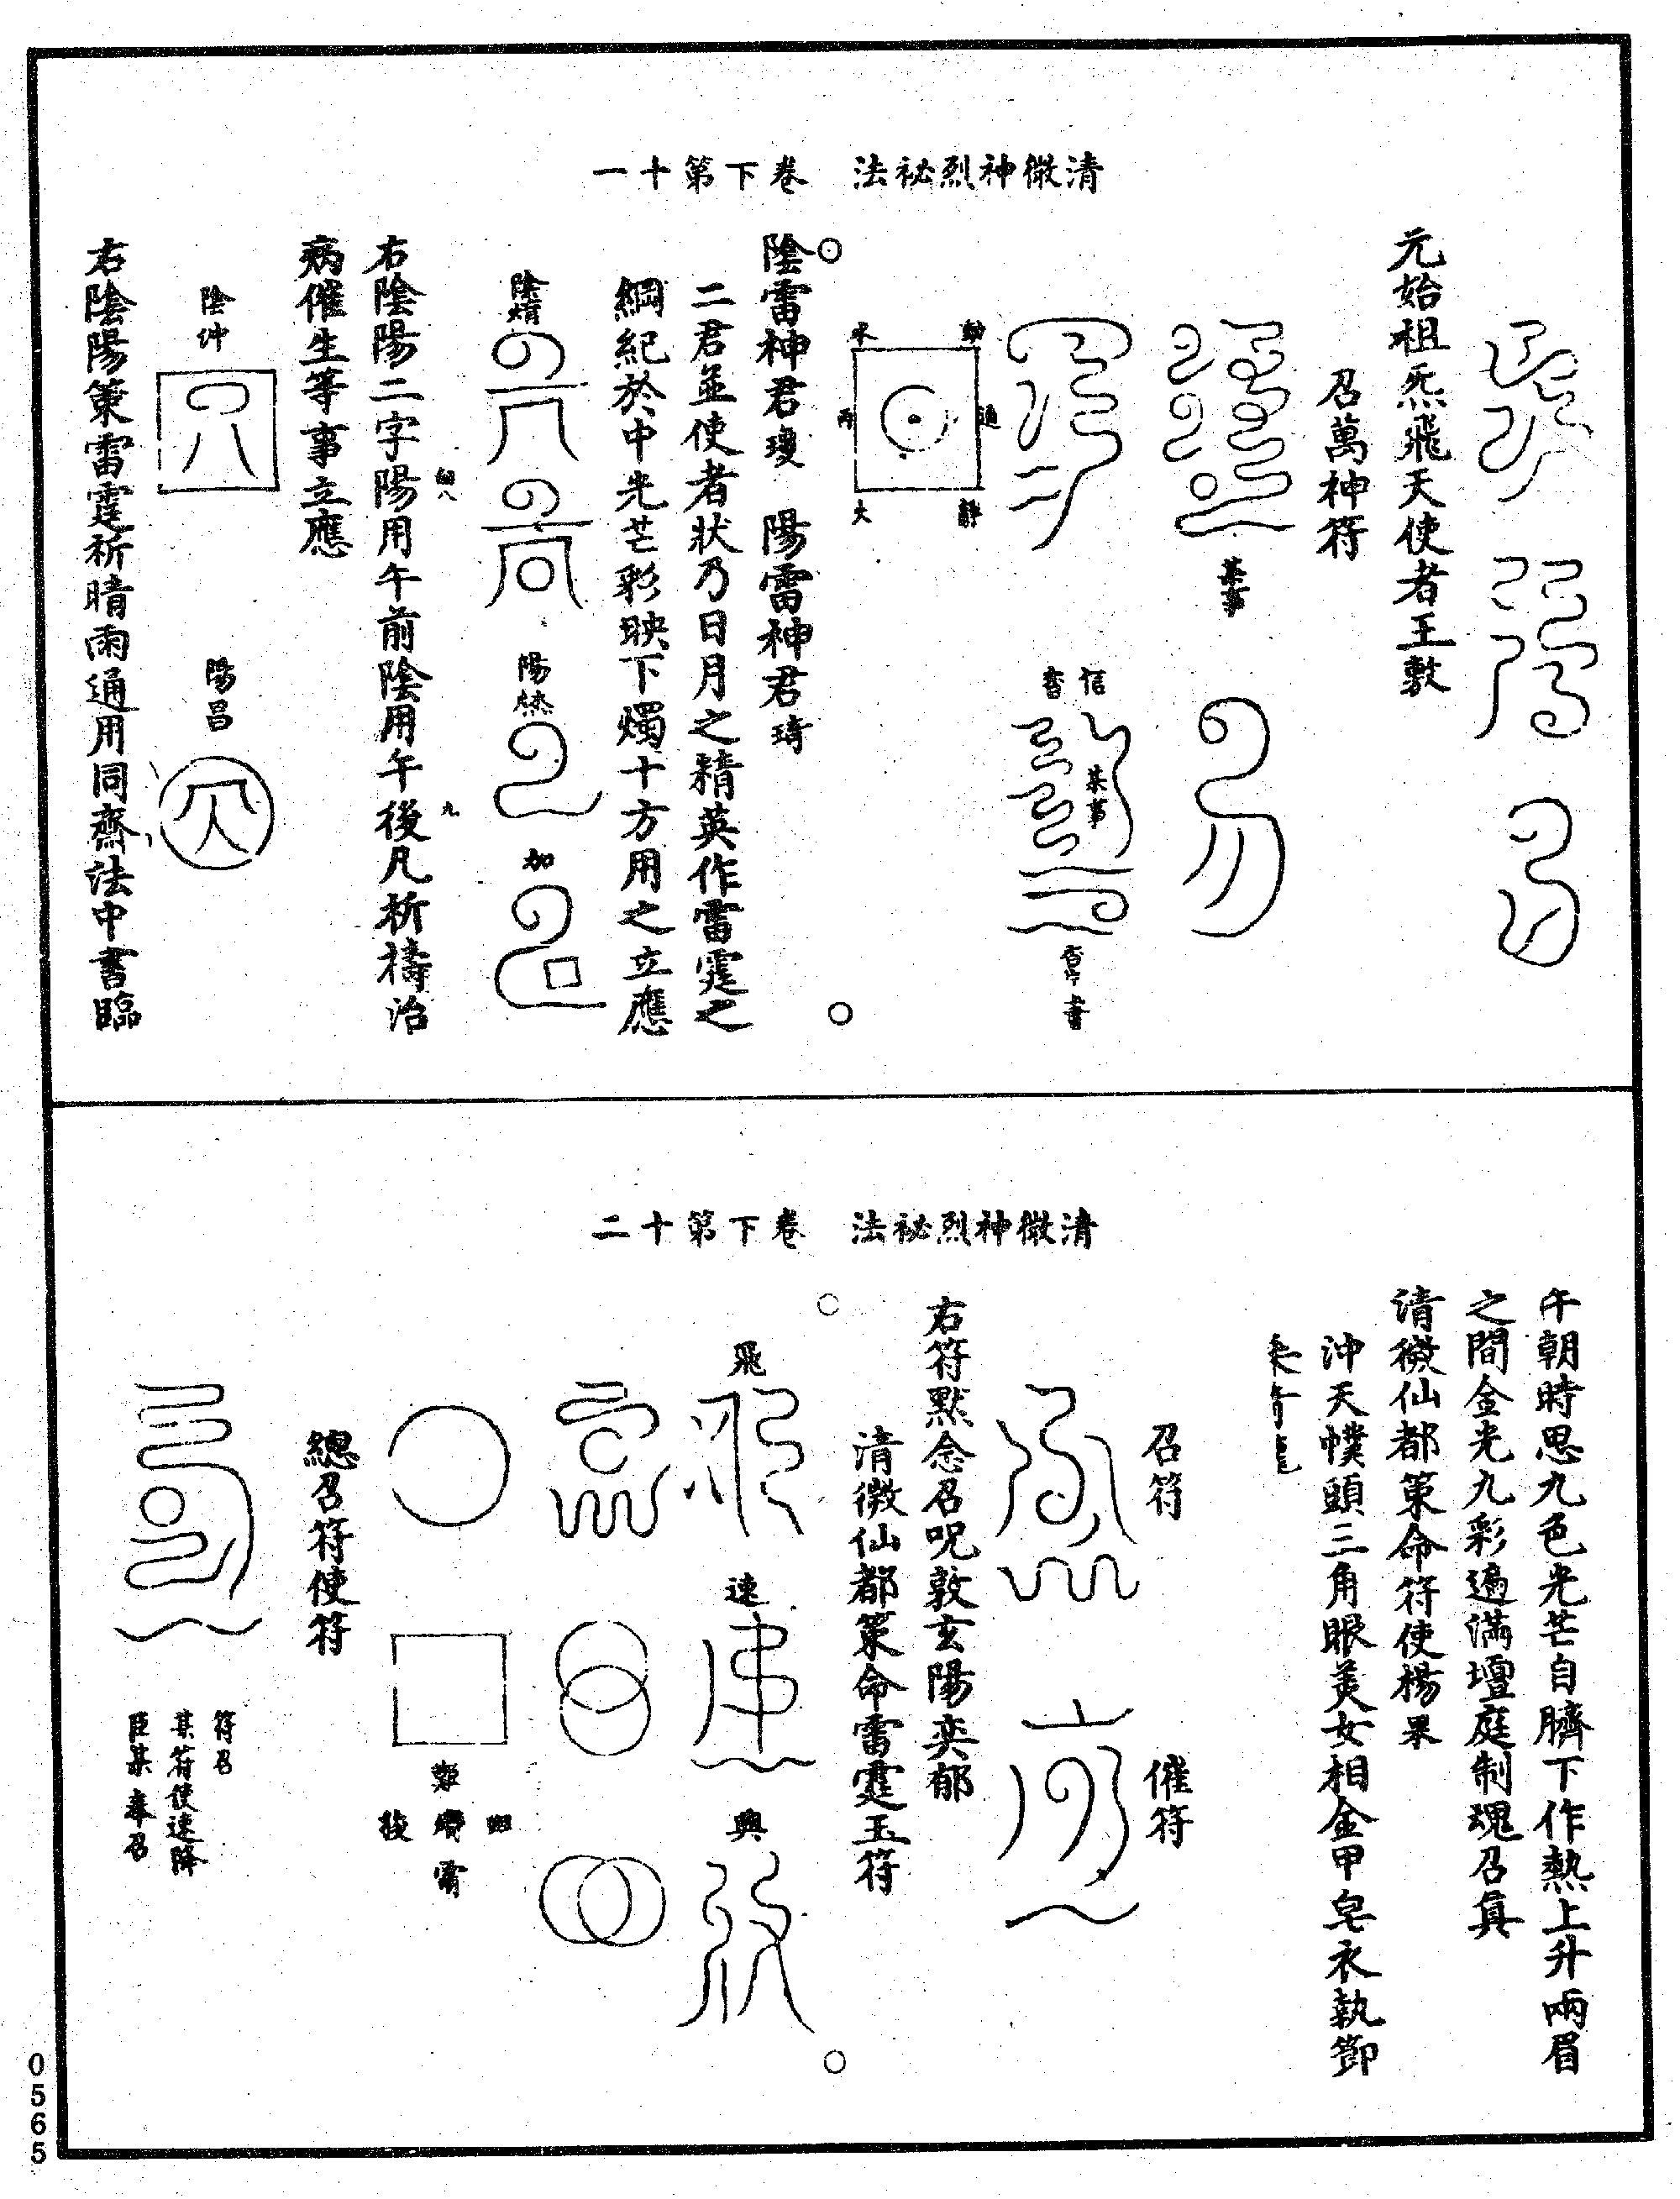 清微神烈祕法　卷下第十一
元始祖炁飛天使者王敷
召萬神符
某事
某事
陰雷神君瓊　陽雷神君琦
二君並使者狀乃日月之精英作雷霆之
綱紀於中光芒彩映下燭十方用之立應
陽
加
右陰陽二字陽用午前陰用午後凡祈禱治
病催生等事立應
陰
陽昌
右陰陽策雷霆祈晴雨通用同齋法中書臨
清微神烈祕法　卷下第十二
午朝時思九色光芒自臍下作熱上升兩眉
之間金光九彩遍滿壇庭制魂召真
清微仙都策命符使楊杲
沖天幞頭三角眼美女相金甲皂衣執節
召符
催符
右符默念召呪敦玄陽奕郁
清微仙都策命雷霆玉符
飛
速
興
總召符使符
符召
某符使速降
臣某奉召
0565